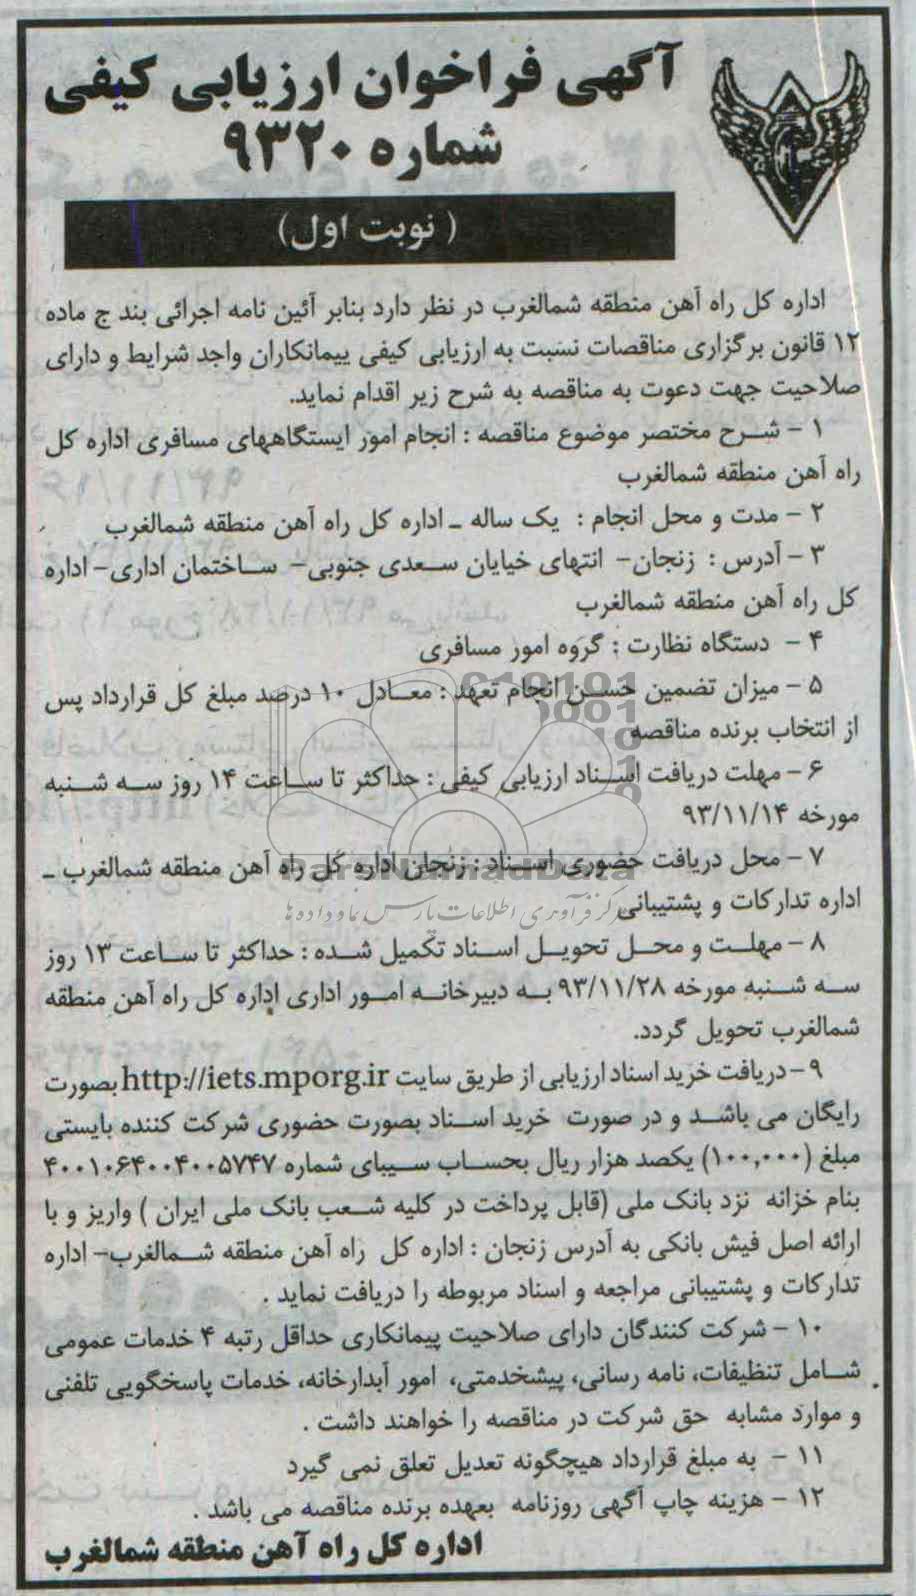 آگهی فراخوان ارزیابی کیفی
شماره ۹۳۲۰
( نوبت اول)
اداره کل راه آهن منطقه شمالغرب در نظر دارد بنابر آئین نامه اجرائی بند ج ماده
۱۲ قانون برگزاری مناقصات نسبت به ارزیابی کیفی پیمانکاران واجد شرایط و دارای
صلاحیت جهت دعوت به مناقصه به شرح زیر اقدام نماید.
۱ - شرح مختصر موضوع مناقصه : انجام امور ایستگاههای مسافری اداره کل
راه آهن منطقه شمالغرب
۲ - مدت و محل انجام : یک ساله ـ اداره کل راه آهن منطقه شمالغرب
۳ - آدرس : زنجان- انتهای خیابان سعدی جنوبی- ساختمان اداری- اداره
کل راه آهن منطقه شمالغرب
۴ - دستگاه نظارت : گروه امور مسافری
۵ - میزان تضمین حسن انجام تعهد : معادل ۱۰ درصد مبلغ کل قرارداد پس
از انتخاب برنده مناقصه
۶ - مهلت دریافت اسناد ارزیابی کیفی : حداکثر تا ساعت ۱۴ روز سه شنبه
مورخه ۹۳/۱۱/۱۴
۷ - محل دریافت حضوری اسناد : زنجان اداره کل راه آهن منطقه شمالغرب ـ
اداره تدارکات و پشتیبانی
۸ - مهلت و محل تحویل اسناد تکمیل شده : حداکثر تا ساعت ۱۳ روز
سه شنبه مورخه ۹۳/۱۱/۲۸ به دبیرخانه امور اداری اداره کل راه آهن منطقه
شمالغرب تحویل گردد.
۹ -دریافت خرید اسناد ارزیابی از طریق سایت http://iets.mporg.ir بصورت
رایگان می باشد و در صورت خرید اسناد بصورت حضوری شرکت کننده بایستی
مبلغ (۱۰۰,۰۰۰) یکصد هزار ریال بحساب سیبای شماره ۴۰۰۱۰۶۴۰۰۴۰۰۵۷۴۷
بنام خزانه نزد بانک ملی (قابل پرداخت در کلیه شعب بانک ملی ایران ) واریز و با
ارائه اصل فیش بانکی به آدرس زنجان : اداره کل راه آهن منطقه شمالغرب- اداره
تدارکات و پشتیبانی مراجعه و اسناد مربوطه را دریافت نماید .
۱۰ - شرکت کنندگان دارای صلاحیت پیمانکاری حداقل رتبه ۴ خدمات عمومی
شامل تنظیفات، نامه رسانی، پیشخدمتی، امور آبدارخانه، خدمات پاسخگویی تلفنی
و موارد مشابه حق شرکت در مناقصه را خواهند داشت .
۱۱ - به مبلغ قرارداد هیچگونه تعدیل تعلق نمی گیرد
۱۲ - هزینه چاپ آگهی روزنامه بعهده برنده مناقصه می باشد .
اداره کل راه آهن منطقه شمالغرب
ParsNamadData
مرکز فرآوری اطلاعات پارس نماد داده ها